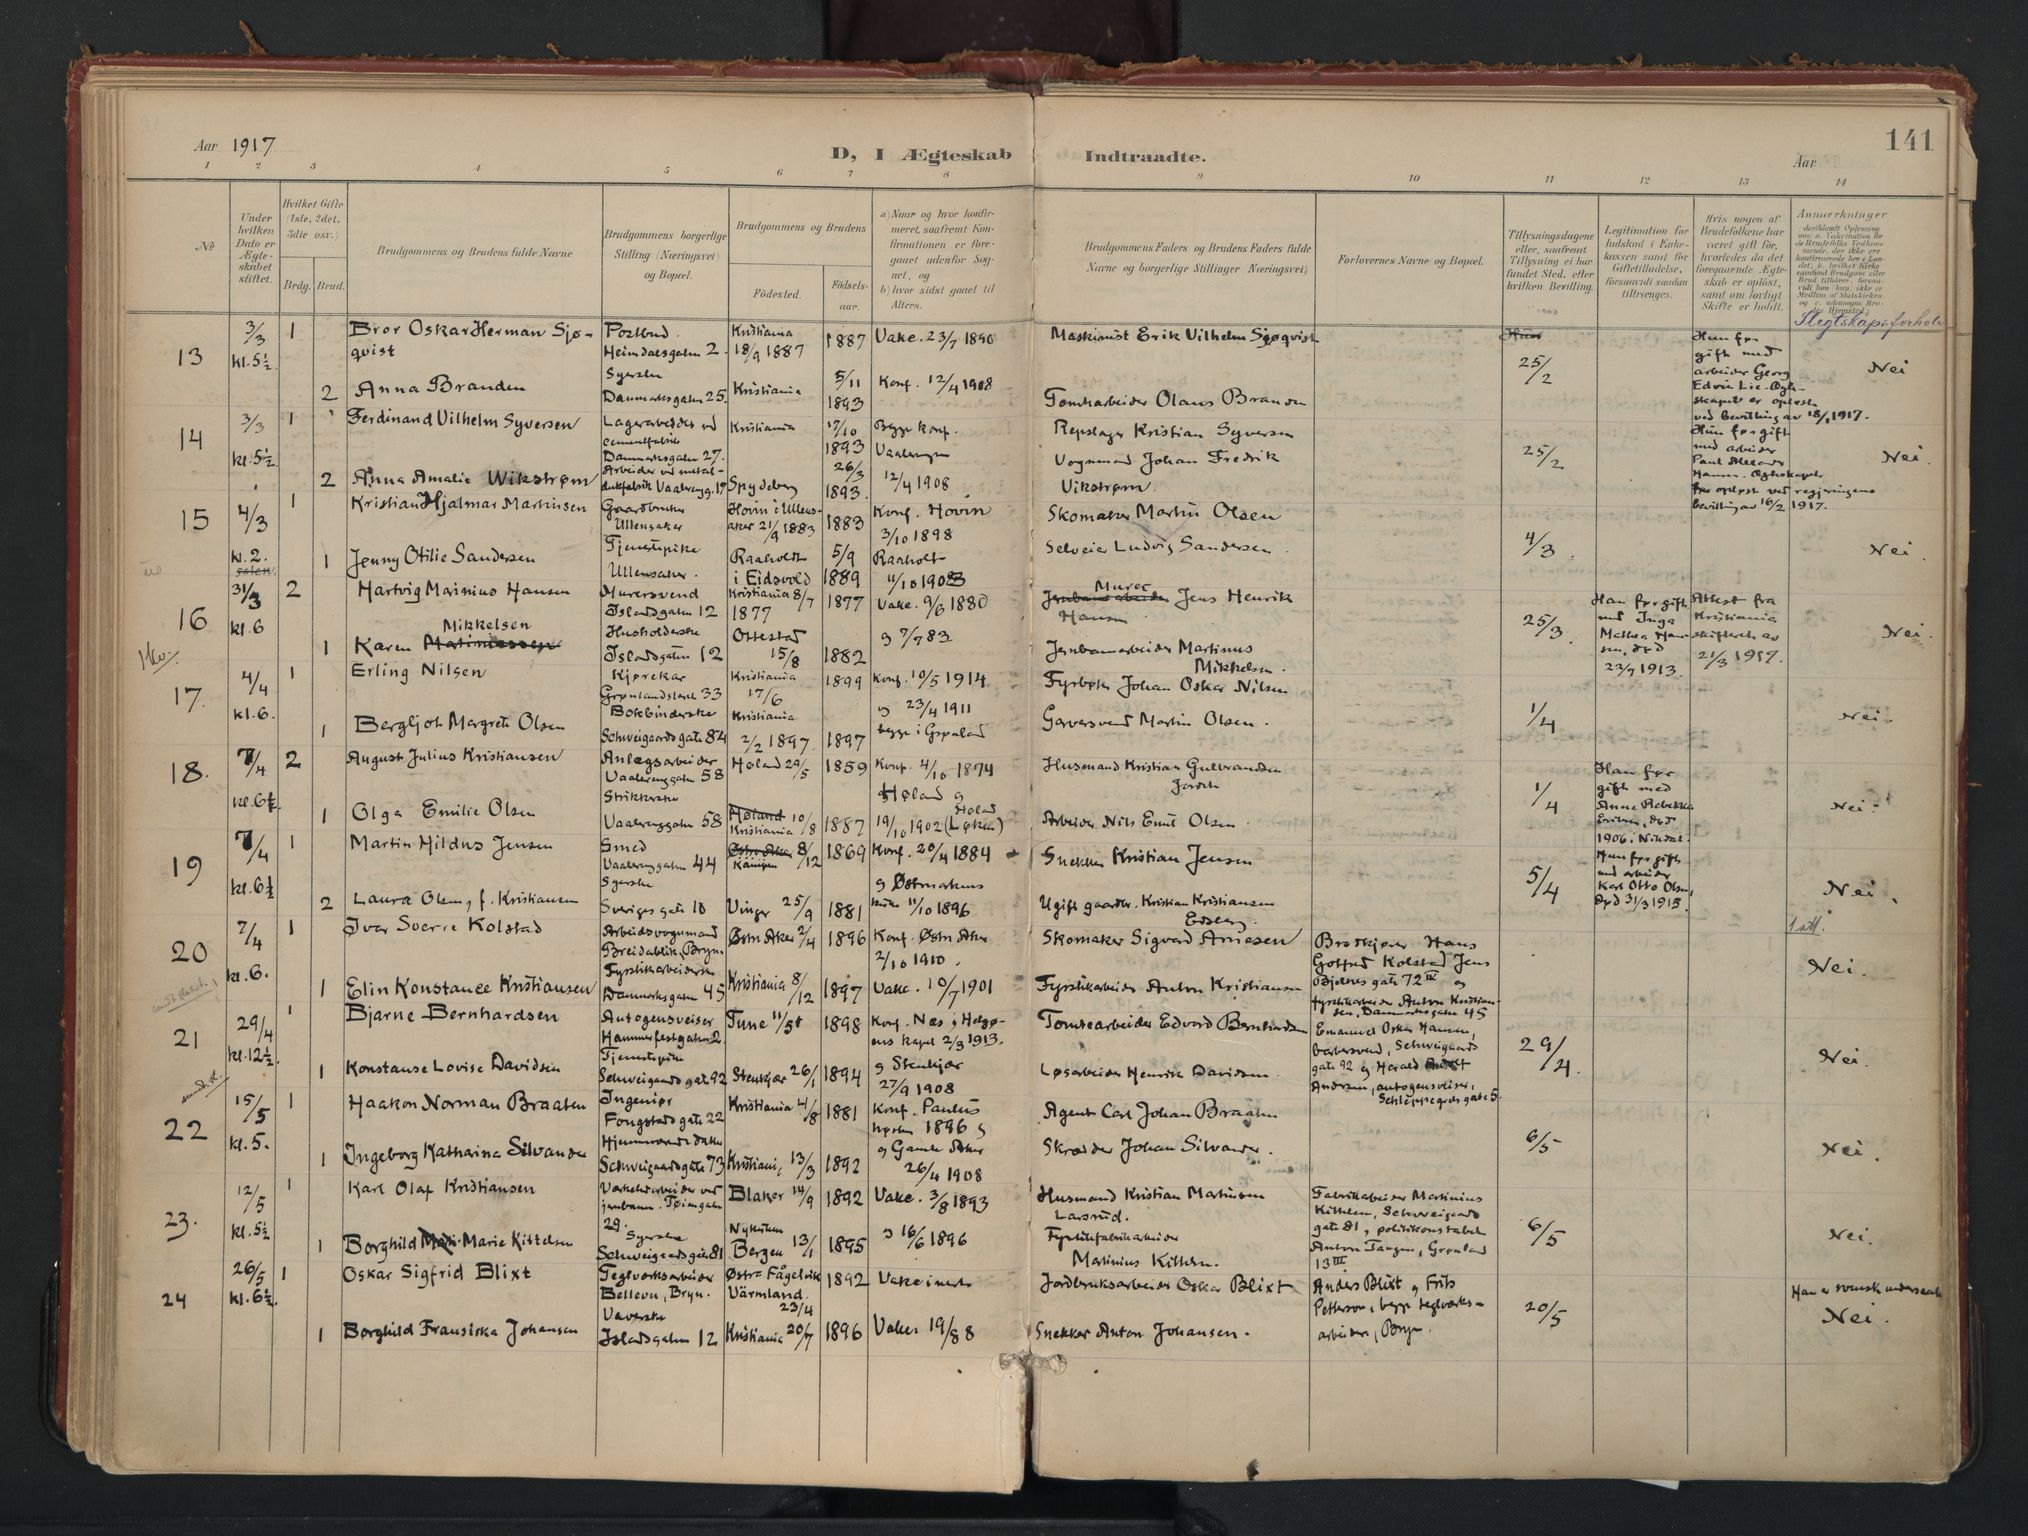 Aar 1917
D, I Ægteskab Indtraadte.
141
Aar
1 2 3 4 5 6 7 8 9 10 11 12 13 14
No
Under hvilken Dato er Ægteskabet stiftet.
Hvilket Gifte (1ste, 2det, 3die osv.)
Brdg. Brud.
Brudgommens og Brudens fulde Navne
Brudgommens borgerlige Stilling (Næringsvei) og Bopæl.
Brudgommens og Brudens
Fødested.
Fødsels-aar.
a) Naar og hvor konfirmeret, saafremt Konfirmationen er foregaaet udenfor Sognet, og b) hvor sidst gaaet til Alters.
Brudgommens Faders og Brudens Faders fulde Navne og borgerlige Stillinger Næringsvei)
Forlovernes Navne og Bopæl.
Tillysningsdagene eller, saafremt Tillysning ei har fundet Sted, efter hvilken Bevilling.
Legitimation for Indskud i Enkekassen samt for Giftetilladelse, forsaavidt saadan tiltrænges.
Hvis nogen af Brudefolkene har været gift før, hvorledes da det foregaaende Ægteskab er opløst, samt om lovligt Skifte er holdt.
Anmerkninger
Slegtskapsforhold
13 3/3 kl. 5½ 1 Bror Oskar Herman Sjøqvist Postbud. Heimdalsgaten 2. Kristiania 18/9 1887 1887 Vakc. 23/7 1890 Maskinist Erik Vilhelm Sjøqvist
2 Anna Branden Syerske Danmarksgaten 25. Kristiania 5/11 1893 Konf. 12/4 1908 Tomtearbeider Olaus Branden 25/2 Hun før gift med arbeider Georg Edvin Lie. Ægteskapet er opløst ved bevilling av 18/1 1917. Nei
14 3/3 kl. 5½ 1 Ferdinand Vilhelm Syversen Lagerarbeider ved cementfabrik Danmarksgaten 27. Kristiania 17/10 1893 Begge konf. Vaalerengen Repslager Kristian Syversen
2 Anna Amalie Wikstrøm Arbeider ved metaldukfabrik Vaalerengg. 19 Spydeberg 26/3 1893 12/4 1908 Vognmand Johan Fredrik Vikstrøm. 25/2 Hun før gift med arbeider Paul Hansen. Ægteskapet før opløst ved regjeringens bevilling av 16/2 1917. Nei
15 4/3 kl. 2. 1 Kristian Hjalmar Martinsen Gaardbruker Ullensaker Hovin i Ullensaker 21/9 1883 1883 Konf. Hovin 3/10 1898 Skomaker Martin Olsen
1 Jenny Otilie Sandersen Tjenestepike Ullensaker. Raaholt i Eidsvold 5/9 1889 Raaholt 11/10 1903 Selveier Ludvig Sandersen 4/3. Nei.
16 31/3 kl. 6 2 Hartvig Marinius Hansen Murersvend Islandsgaten 12 Kristiania 8/7 1877 1877 Vakc. 9/6 1880 Murer Jens Henrik Hansen
1 Karen Mikkelsen Husholderske Islandsgaten 12 Ottestad 15/8 1882 og 7/7 83 Jernbanearbeider Martinus Mikkelsen. 25/3. Han før gift med Inga Mathea Hansen, død 22/7 1913. Attest fra Kristiania skifteret av 21/3 1917. Nei.
17. 4/4 kl. 6. 1 Erling Nilsen Kjørekar Grønlandsleret 33 Kristiania 17/6 1899 Konf. 10/5 1914 Fyrbøter Johan Oskar Nilsen
1 Bergljot Margrete Olsen Bokbinderske Schweigaardsgate 84 Kristiania 2/2 1897. 1897 og 23/4 1911 begge i Grønland Garversvend Martin Olsen. 1/4 Nei.
18. 7/4 kl. 6½. 2 August Julius Kristiansen Anlægsarbeider Vaalerenggaten 58 Høland 29/5 1859 Konf. 4/10 1874 Høland og Husmand Kristian Gulbrandsen
1 Olga Emilie Olsen Strikkerske Vaalerenggaten 58 Kristiania 10/8 1887 19/10 1902 (Løken) Høland Arbeider Nils Emil Olsen 1/4 Han før gift med Anne Rebekka død 1906. Nei.
19 7/4 kl. 6½ 1 Martin Hildus Jensen Smed Vaalerenggaten 44 Kampen 8/12 1869 Konf. 20/4 1884 Snekker Kristian Jensen
2 Laura Olsen, f. Kristiansen Syerske Sveriges gate 10 Vinger 25/9 1881 og Østmarkens kirke 11/10 1896 Ugift gaardbr. Kristian Kristiansen 5/4 Hun før gift med arbeider Karl Otto Olsen, død 31/3 1915. Nei.
1 att.
20 7/4 kl. 6. 1 Ivar Sverre Kolstad Arbeidsvognmand Breidablik, Bryn. Østre Aker 2/4 1896 Konf. Østre Aker 2/10 1910. Skomaker Sigvard Arnesen Brødkjører Hans Gotfred Kolstad Jens Bjelkes gate 72 IV og
1 Elin Konstance Kristiansen Fyrstikarbeiderske Danmarksgaten 45 Kristiania 8/12 1897 Vakc. 10/7 1901 Fyrstikarbeider Anton Kristiansen fyrstikarbeider Anton Kristiansen, Danmarksgaten 45 Nei.
21 29/4 kl. 12½. 1 Bjarne Bernhardsen Autogensveiser Hammerfestgaten 2. Tune 11/5 1898 Konf. Næs og Helgøens kapel 2/3 1913. Tomtearbeider Edvard Bernhardsen Emanuel Oskar Hansen, barbersvend, Schweigaards gate 92 og Harald
1 Konstanse Lovise Davidsen Tjenestepike Schweigaardsgate 92 Stenkjær 26/1 1894 og Stenkjær 27/9 1908 Løsarbeider Henrik Davidsen. Andersen, autogensveiser, Schleppegrels gate 5. 29/4. Nei.
22 15/5 kl. 5. 1 Haakon Norman Braaten Ingeniør Fougstads gate 22 Kristiania 4/8 1881 Konf. Paulus høsten 1896 og Agent Carl Johan Braaten
1 Ingeborg Katharina Silvander Hjemmeværende datter Schweigaardsgate 73 Kristiania, 13/3 1892 og Gamle Aker 26/4 1908 Skrædder Johan Silvander. 6/5 Nei.
23. 12/5 kl. 5½ 1 Karl Olaf Kristiansen Verkstedarbeider ved jernbanen. Tøiengaten 29. Blaker 14/9 1892 Vakc. 3/8 1893 Husmand Kristian Martinsen Larsrud. Fabrikarbeider Martinius Kittelsen, Schweigaards gate 81, politikonstabel
1 Borghild Marie Kittelsen Syerske Schweigaardsgate 81 Nykirken Bergen 13/1 1895 og 16/6 1896 Fyrstikfabrikarbeider Martinius Kittelsen. Anton Tangen, Grønland 13 III. 6/5 Nei.
24 26/5 kl. 6½. 1 Oskar Sigfrid Blixt Teglverksarbeider Bellevu, Bryn. Østra Fågelvik Värmland. 23/4 1892 Vakcinerte Jordbruksarbeider Oskar Blixt Anders Blixt og Frits Petterson, begge teglverksarbeidere, Bryn. Han er svensk undersaat
1 Borghild Fransiska Johansen Væverske Islandsgaten 12 Kristiania 20/7 1896 Vakc. 19/8 8 Snekker Anton Johansen. 20/5 Nei.